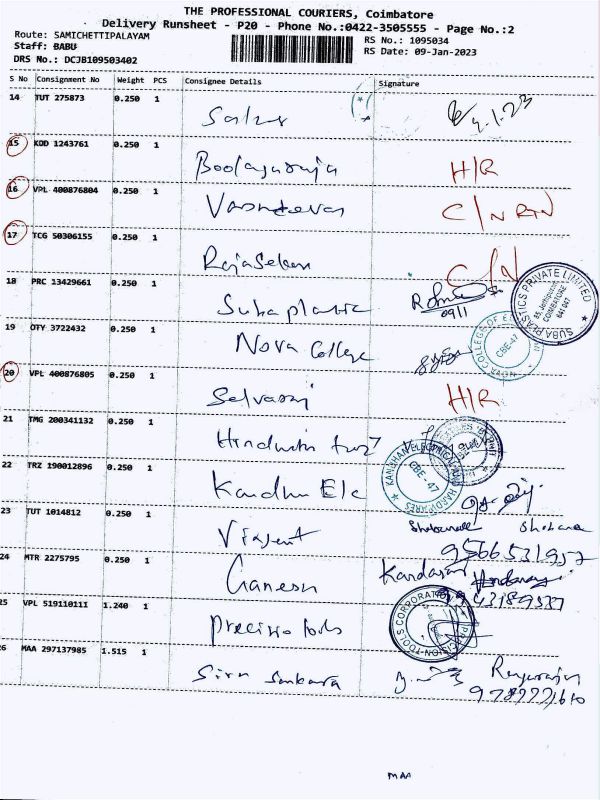 THE PROFESSIONAL COURIERS, Coimbatore
Delivery Runsheet - P20 - Phone No.:0422-3505555 - Page No.:2
Route: SAMICHETTIPALAYAM
RS No.: 1095034
Staff: BABU
RS Date: 09-Jan-2023
DRS No.: DCJB109503402
S No Consignment No Weight PCS Consignee Details Signature
14 TUT 275873 0.250 1
15 KDD 1243761 0.250 1 H/R
16 VPL 400876804 0.250 1 Vasudevan C/N
17 TCG 50306155 0.250 1 RajaSekan C/N
18 PRC 13429661 0.250 1 Suba plastic
09/1
SUBA PLASTICS PRIVATE LIMITED
COIMBATORE
641 047
19 OTY 3722432 0.250 1 Nova College
NOVA COLLEGE OF
CBE-47
20 VPL 400876805 0.250 1 Selvaraj H/R
21 TMG 200341132 0.250 1 Hindustan
22 TRZ 190012896 0.250 1 Kandhu Ele
CBE - 47
23 TUT 1014812 0.250 1 Vincent
9566531957
24 MTR 2275795 0.250 1 Ganesh Kandasami
25 VPL 519110111 1.240 1 Precision tools
PRECISION-TOOLS CORPORATION
26 MAA 297137985 1.515 1 Siru Sankara
MAA